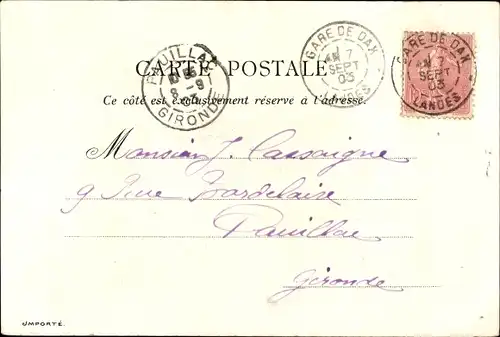 CARTE POSTALE
Ce côté est exclusivement réservé à l'adresse.
PAUILLAC
8 -9
03
GIRONDE
GARE DE DAX
7
SEPT
03
LANDES
GARE DE DAX
SEPT
03
LANDES
Monsieur J. Cassaigne
9 Rue Bordelaise
Pauillac
Gironde
IMPORTÉ.